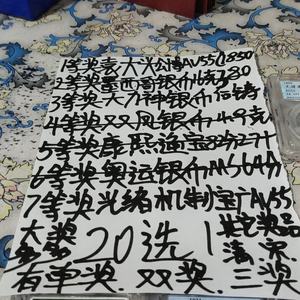 1等奖袁大头公博AU55 1850
2等奖墨西哥银币
3等奖大力神银币后铸
4等奖双凤银币49克
5等奖康熙通宝82分27
6等奖奥运银币MS64分
7等奖光绪机制宝广AU55
大奖
多多
20选1
其它奖品
清荣
有单奖 双奖 三奖